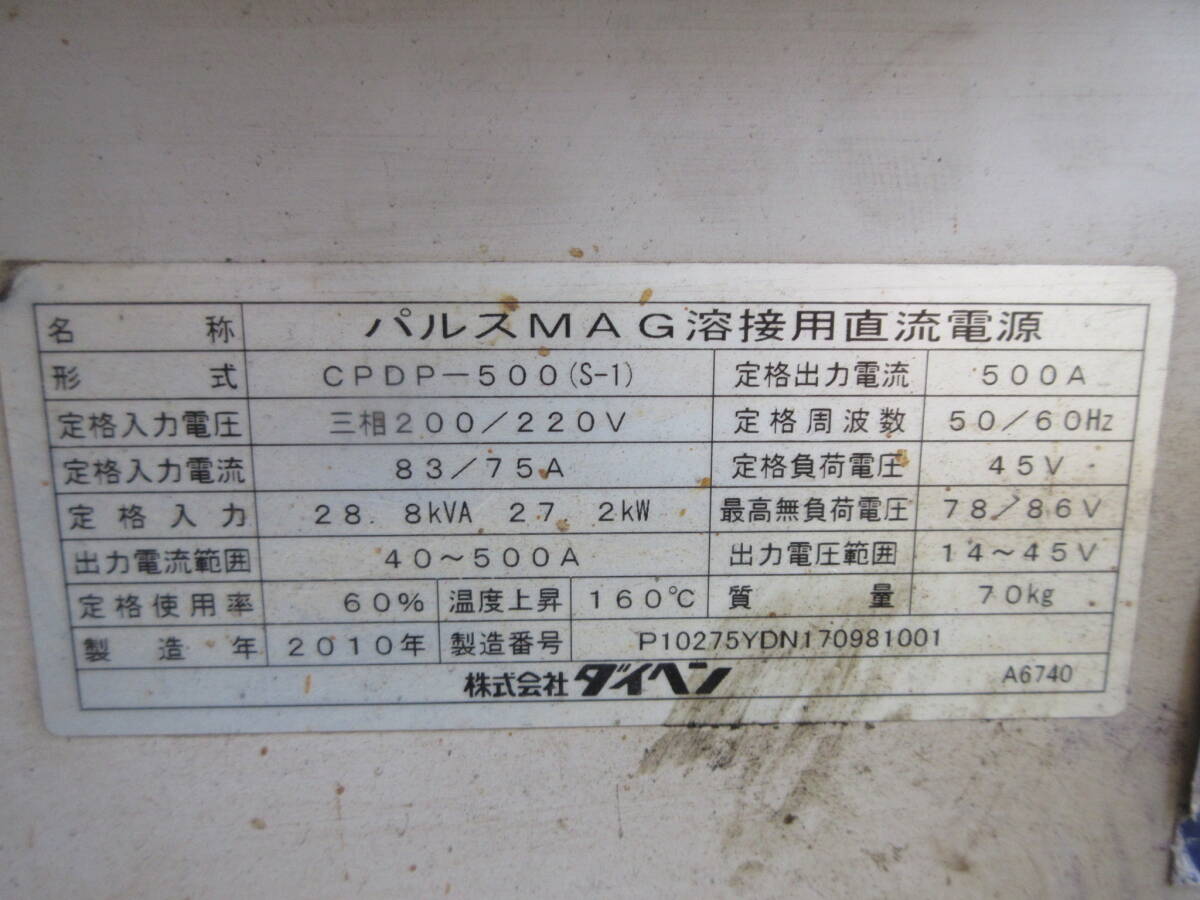 名称 パルスMAG溶接用直流電源
形式 CPDP-500(S-1) 定格出力電流 500A
定格入力電圧 三相200/220V 定格周波数 50/60Hz
定格入力電流 83/75A 定格負荷電圧 45V
定格入力 28.8kVA 27.2kW 最高無負荷電圧 78/86V
出力電流範囲 40~500A 出力電圧範囲 14~45V
定格使用率 60% 温度上昇 160℃ 質量 70kg
製造年 2010年 製造番号 P10275YDN170981001
株式会社ダイヘン A6740